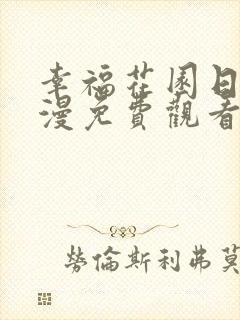 幸福花园日
漫免費觀看
勞倫斯利弗莫